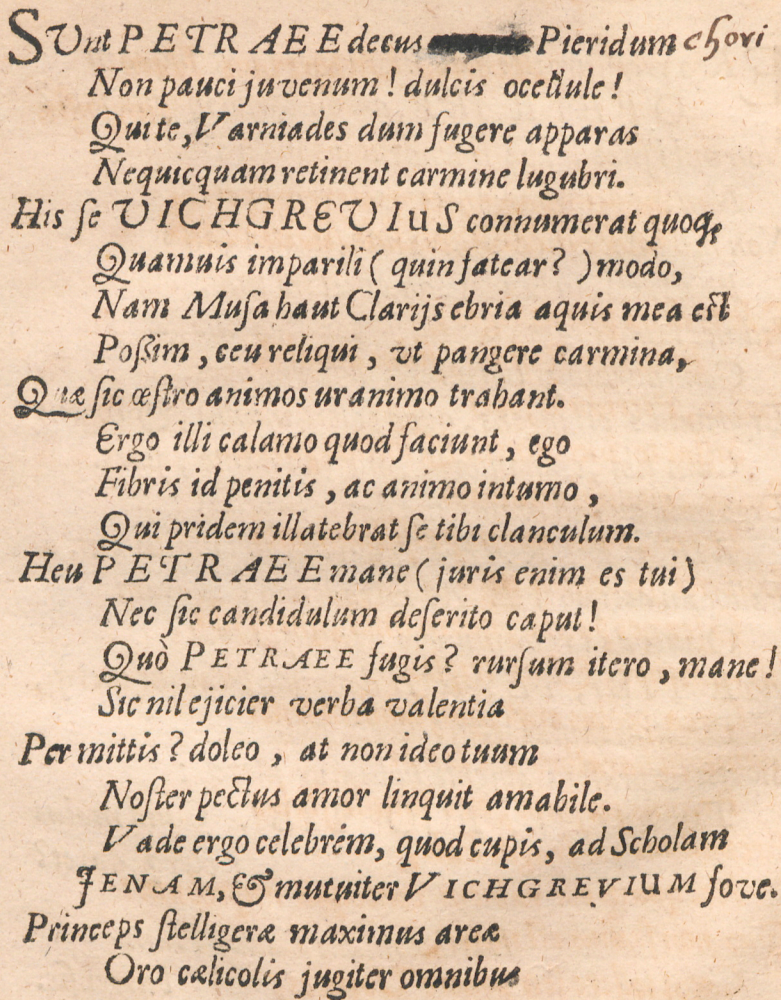 SUnt PETRAEE decus Pieridum chori
Non pauci juvenum! dulcis ocellule!
Qui te, Varniades dum fugere apparas
Nequicquam retinent carmine lugubri.
His se VICHGREVIuS connumerat quoq;
Quamuis imparili ( quin fatear? ) modo,
Nam Musa haut Clarijs ebria aquis mea est
Poßim, ceu reliqui, vt pangere carmina,
Quæ sic œstro animos ur animo trahant.
Ergo illi calamo quod faciunt, ego
Fibris id penitis, ac animo intumo,
Qui pridem illatebrat se tibi clanculum.
Heu PETRAEE mane ( juris enim es tui )
Nec sic candidulum deserito caput!
Quò PETRAEE fugis? rursum itero, mane!
Sic nil ejicier verba valentia
Per mittis? doleo, at non ideo tuum
Noster pectus amor linquit amabile.
Vade ergo celebrem, quod cupis, ad Scholam
JENAM, & mutuiter VICHGREVIUM fove.
Princeps stelligeræ maximus areæ
Oro cælicolis jugiter omnibus